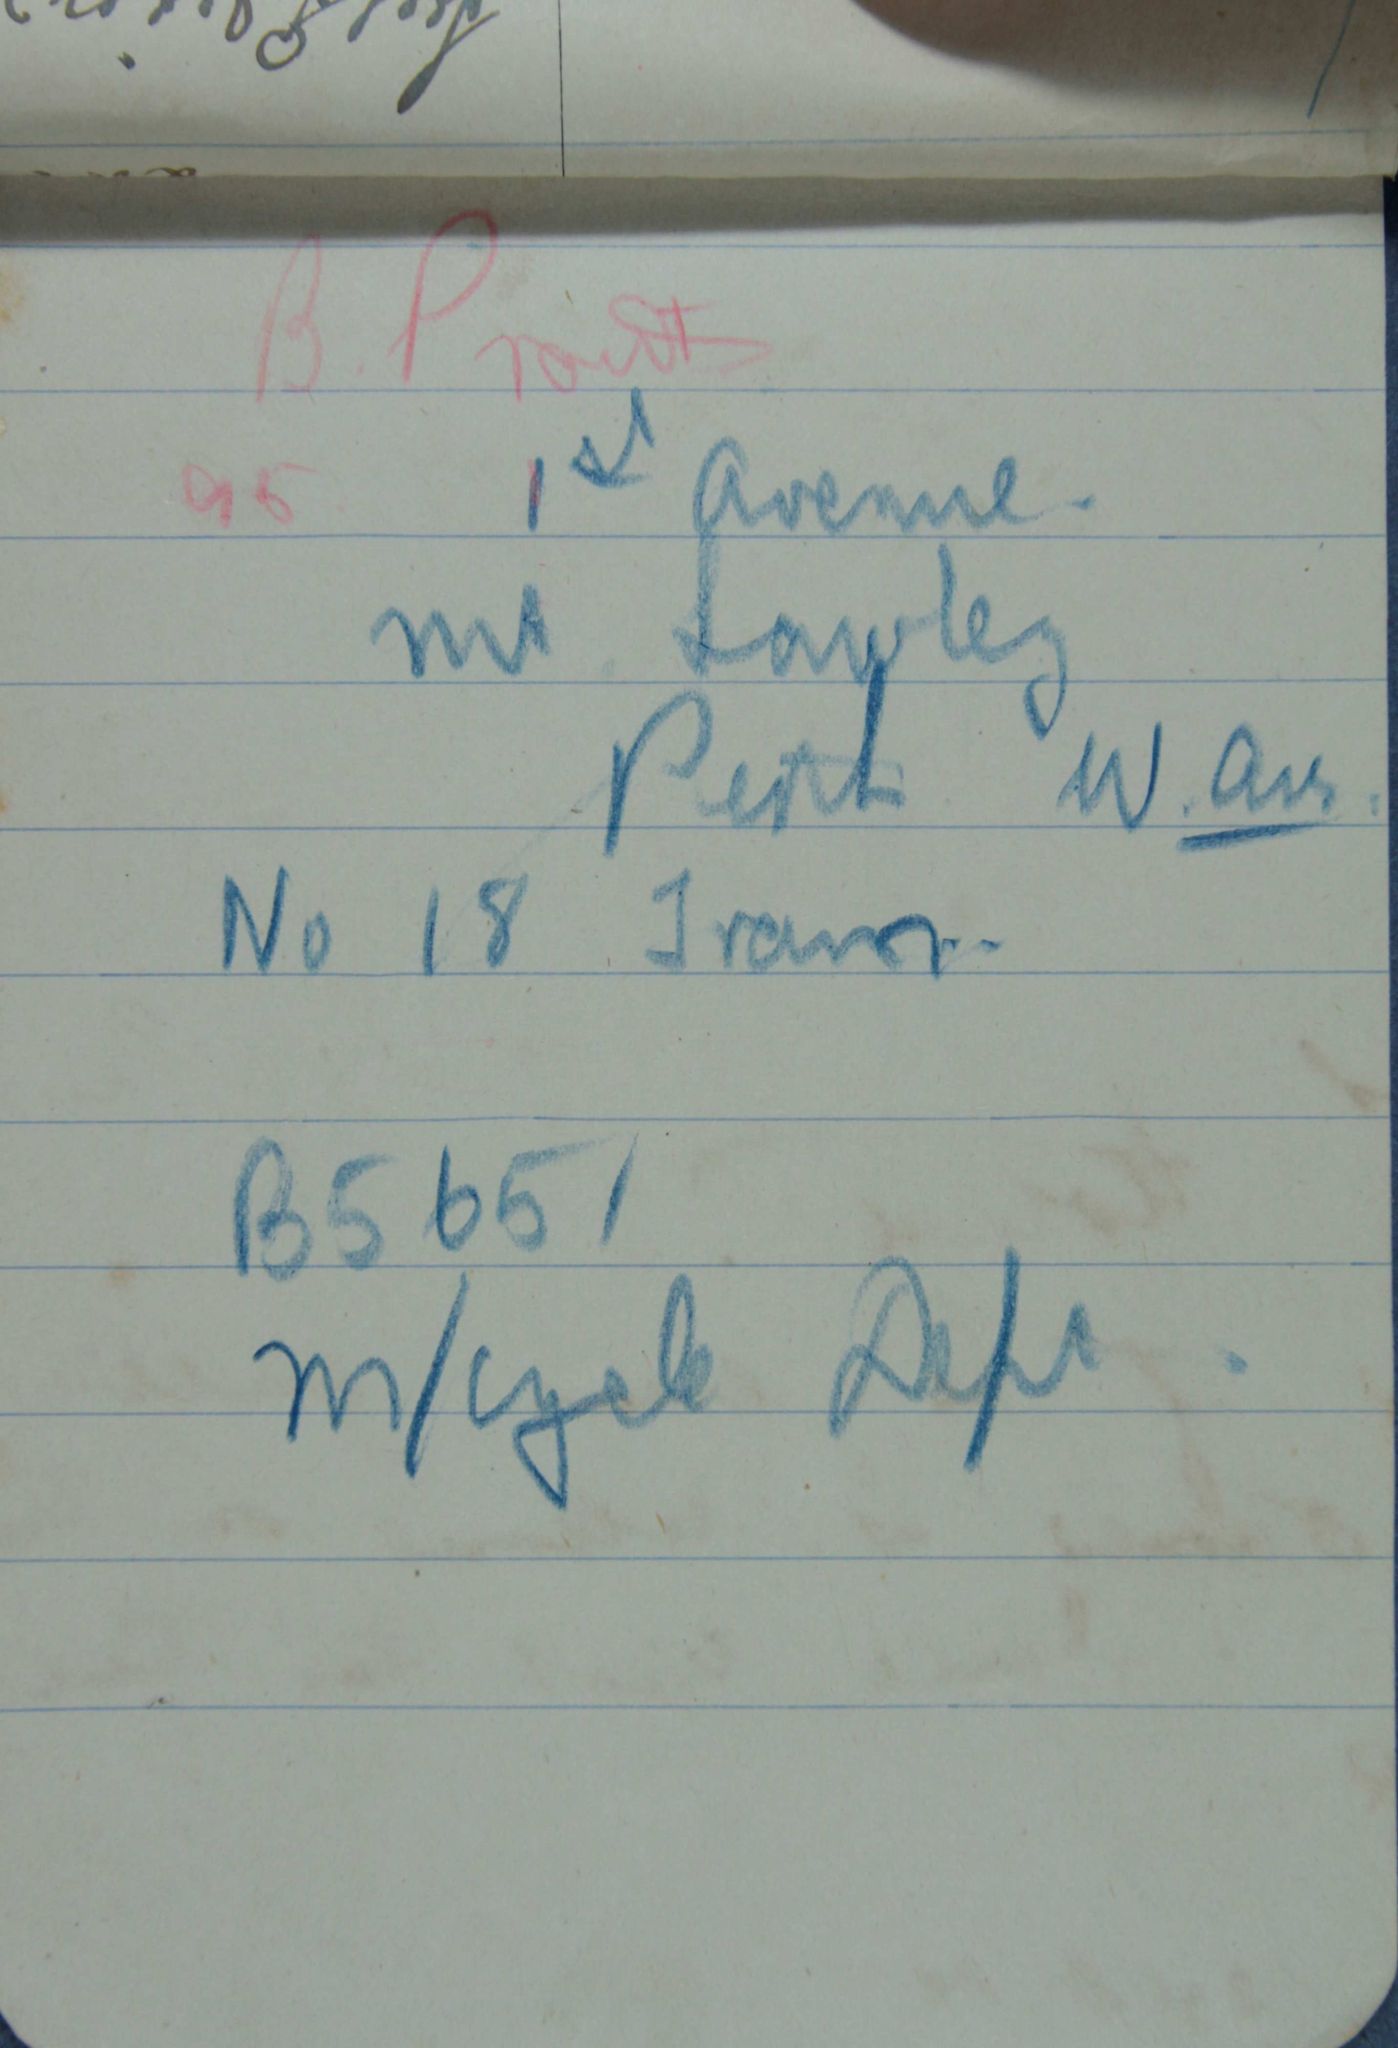 B. Proutt
95. 1st Avenue.
Mt. Lawley
Perth W. Aus.
No 18 Tram.
B5651
M/Cycle Dept.